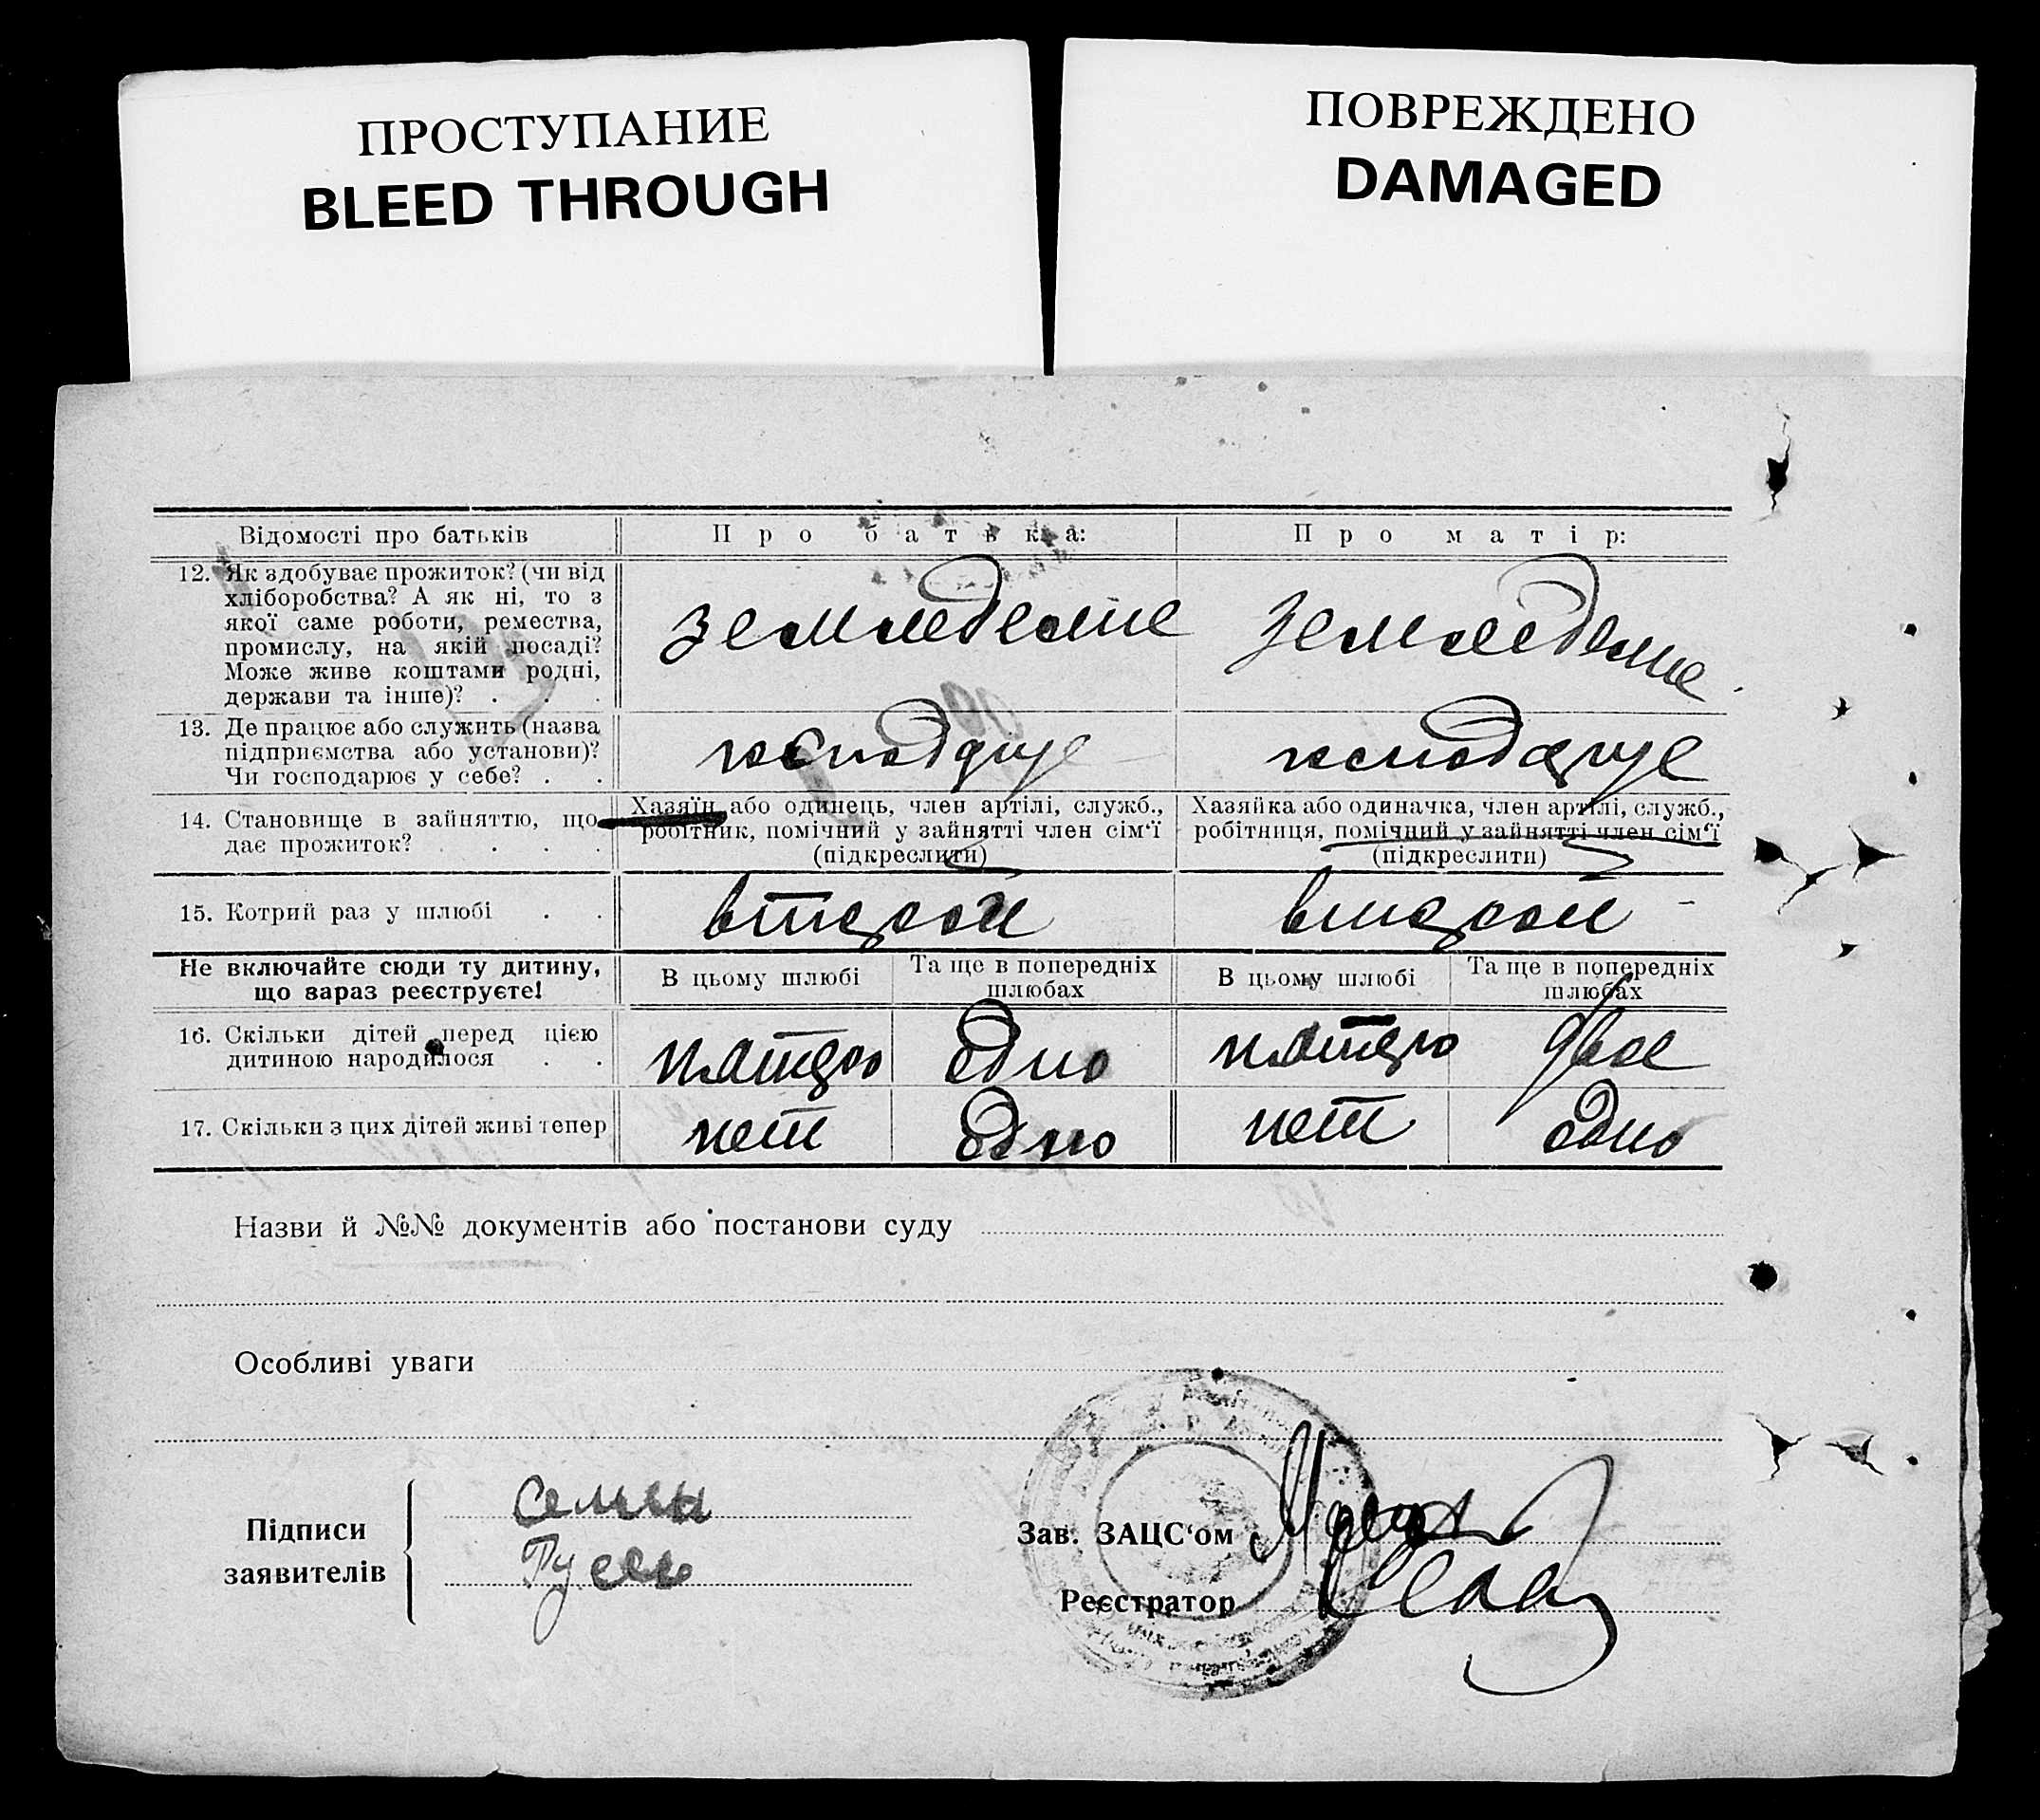 ПРОСТУПАНИЕ
BLEED THROUGH
ПОВРЕЖДЕНО
DAMAGED
Відомості про батьків
Про батька:
Про матір:
12. Як здобуває прожиток? (чи від
хліборобства? А як ні, то з
якої саме роботи, ремества,
промислу, на якій посаді?
Може живе коштами родні,
держави та інше)? . . .
земледелие
земледелие
13. Де працює або служить (назва
підприємства або установи)?
Чи господарює у себе? . .
14. Становище в зайняттю, що
дає прожиток? . . . .
Хазяїн або одинець, член артілі, служб.,
робітник, помічний у зайнятті член сім'ї
(підкреслити)
Хазяйка або одиначка, член артілі, служб.,
робітниця, помічний у зайнятті член сім'ї
(підкреслити)
15. Котрий раз у шлюбі . .
второй
второй
Не включайте сюди ту дитину,
що зараз реєструєте!
В цьому шлюбі
Та ще в попередніх
шлюбах
В цьому шлюбі
Та ще в попередніх
шлюбах
16. Скільки дітей перед цією
дитиною народилося . .
одно
двое
17. Скільки з цих дітей живі тепер
нет
одно
нет
одно
Назви й №№ документів або постанови суду
Особливі уваги
Підписи
заявителів
Семен
Гусев
Зав. ЗАЦС'ом
Реєстратор